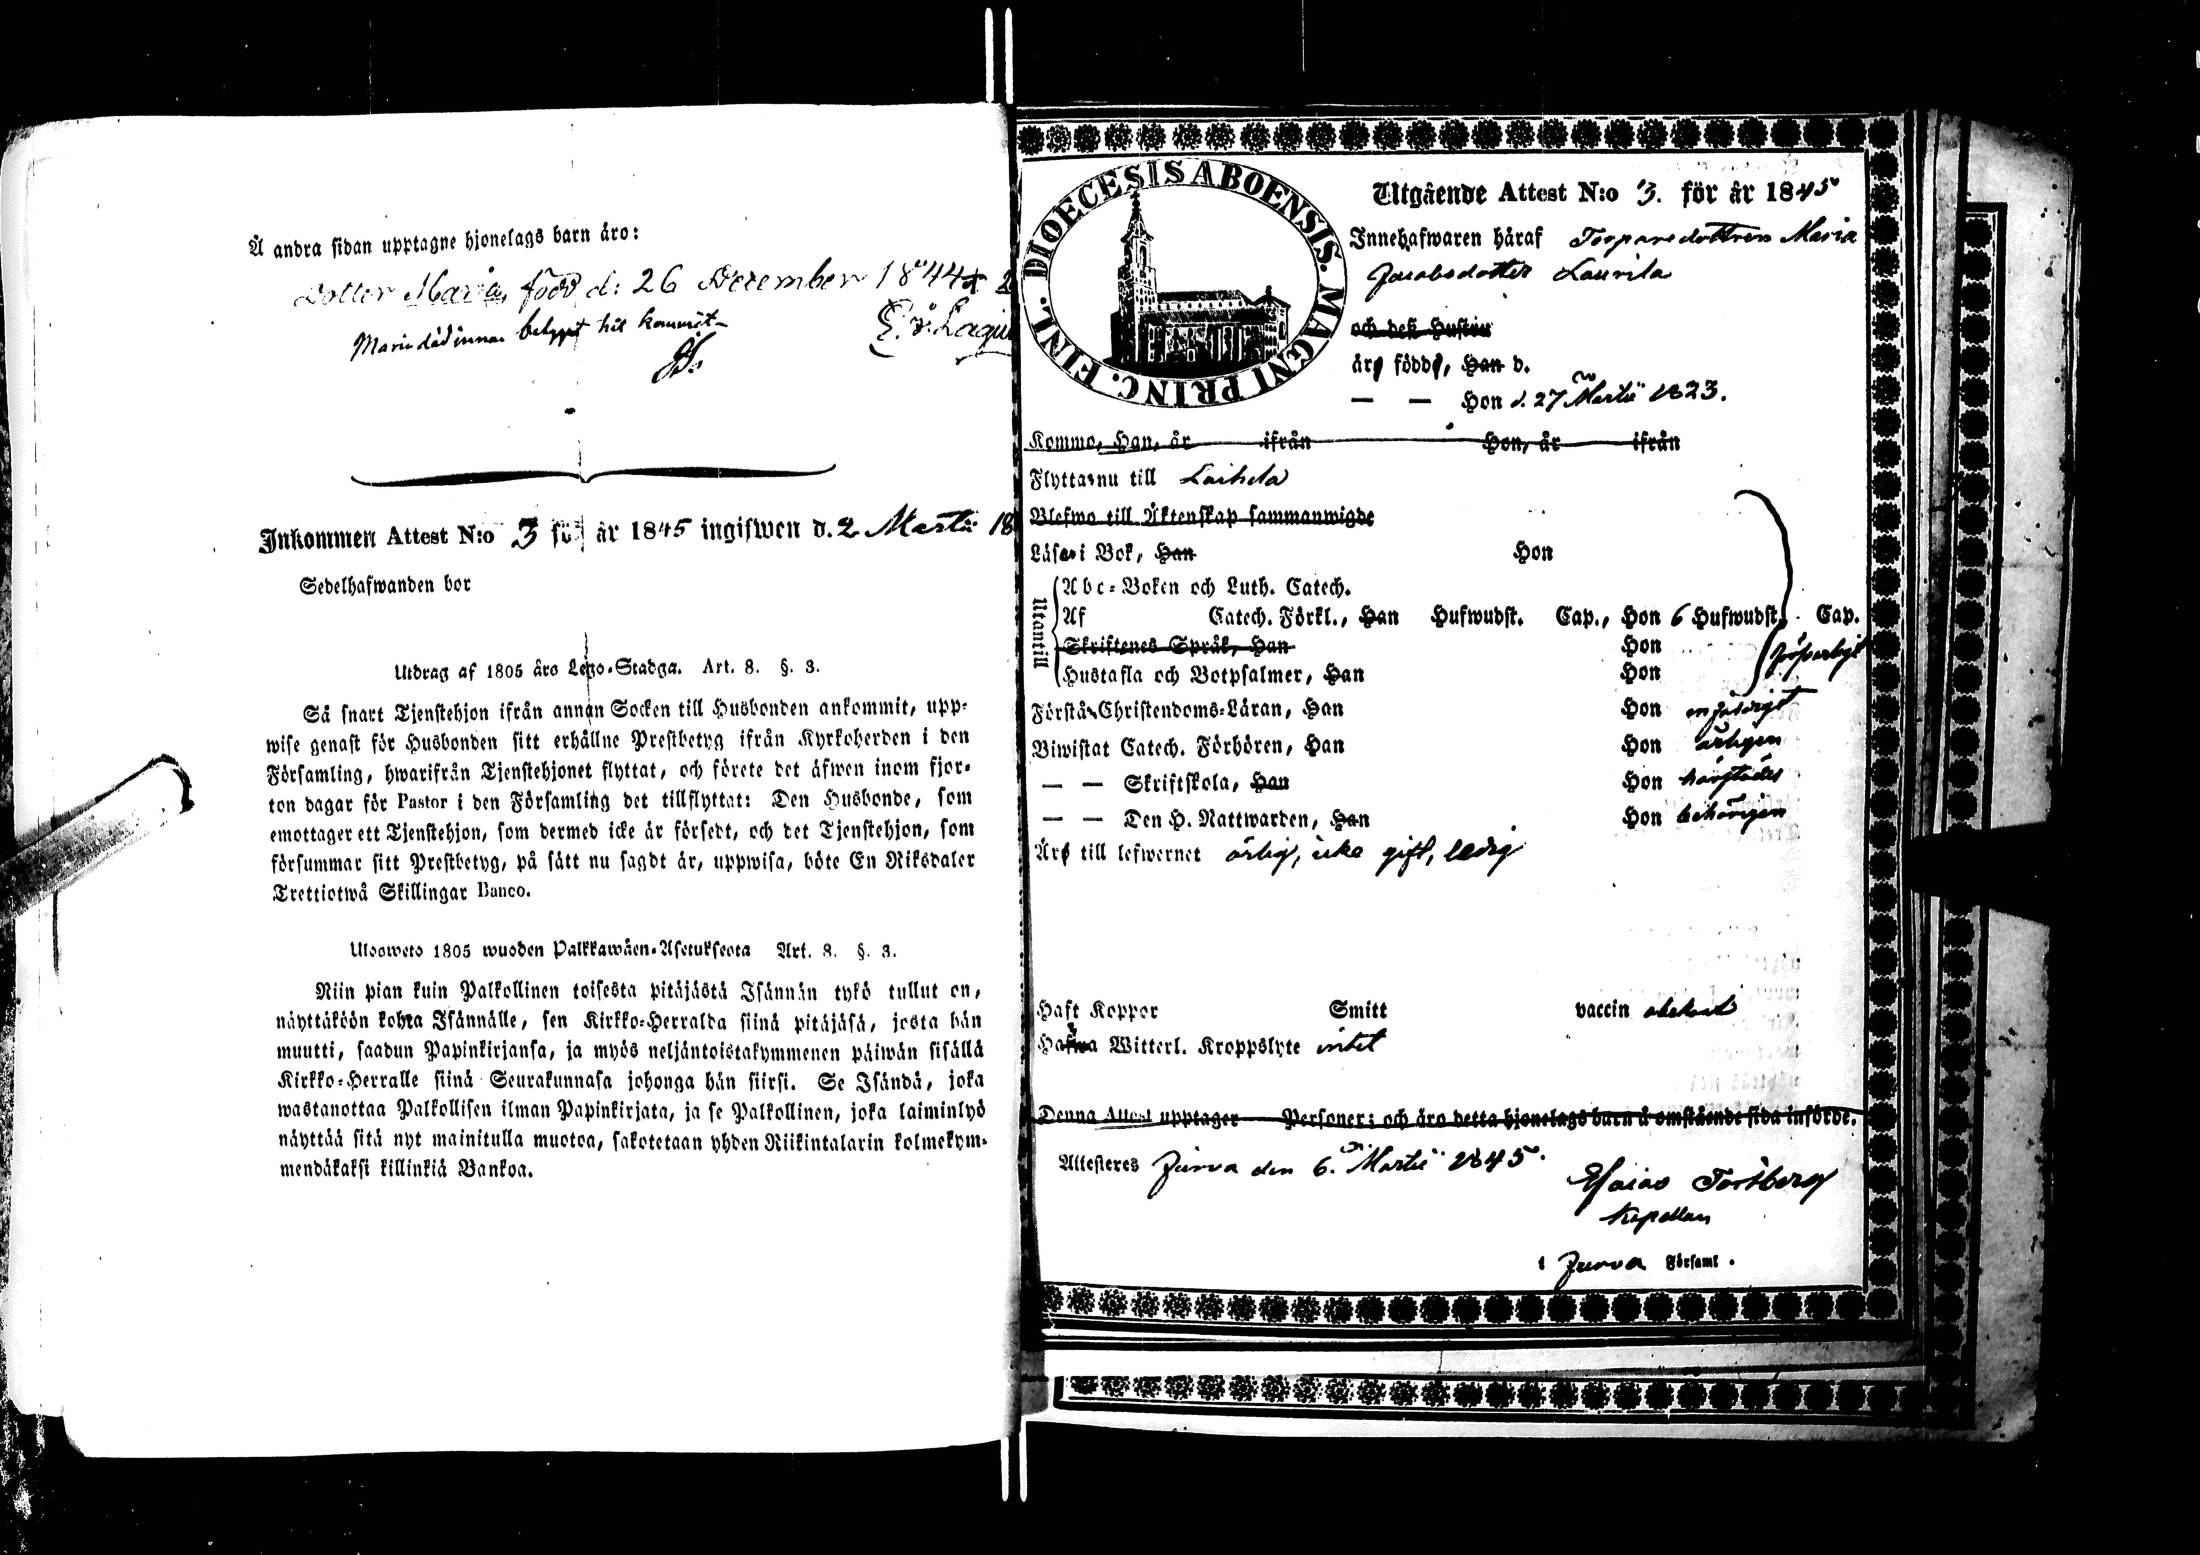 Å andra sidan upptagne hjonelags barn äro:
Dotter Maria, född d: 26 December 1844
Maria död innan betyget hit kommit
Inkommen Attest N:o 3 för år 1845 ingifwen d. 2 Martii 18
Sedelhafwanden bor
Utdrag af 1805 års Lego-Stadga. Art. 8. §. 3.
Så snart Tjenstehjon ifrån annan Socken till Husbonden ankommit, upp-
wise genast för Husbonden sitt erhållne Prestbetyg ifrån Kyrkoherden i den
Församling, hwarifrån Tjenstehjonet flyttat, och förete det äfwen inom fjor-
ton dagar för Pastor i den Församling det tillflyttat: Den Husbonde, som
emottager ett Tjenstehjon, som dermed icke är försedt, och det Tjenstehjon, som
försummar sitt Prestbetyg, på sätt nu sagdt är, uppwisa, böte En Riksdaler
Trettiotwå Skillingar Banco.
Ulosweto 1805 wuoden Palkkawäen-Asetuksesta Art. 8. §. 3.
Niin pian kuin Palkollinen toisesta pitäjästä Isännän tykö tullut on,
näyttäköön kohta Isännälle, sen Kirkko-Herralda siinä pitäjäsä, josta hän
muutti, saadun Papinkirjansa, ja myös neljäntoistakymmenen päiwän sisällä
Kirkko-Herralle siinä Seurakunnasa johonga hän siirsi. Se Isändä, joka
wastanottaa Palkollisen ilman Papinkirjata, ja se Palkollinen, joka laiminlyö
näyttää sitä nyt mainitulla muotoa, sakotetaan yhden Riikintalarin kolmekym-
mendäkaksi killinkiä Bankoa.
DIOECESIS ABOENSIS. MAGNI PRINC. FINL.
Utgående Attest N:o 3. för år 1845
Innehafwaren häraf Torparedottren Maria
Jacobsdotter Laurila
och deß Hustru
äro födde, Han d.
— — Hon d. 27 Martii 1823.
Kommo, Han, år ifrån Hon, år ifrån
Flytta nu till Laihela
Blefwo till Äktenskap sammanwigde
Läsa i Bok, Han Hon
Utantill
Abc-Boken och Luth. Catech.
Af Catech. Förkl., Han Hufwudst. Cap., Hon 6 Hufwudst. Cap.
Skriftenes Språk, Han Hon
Hustafla och Botpsalmer, Han Hon
Förstå Christendoms-Läran, Han Hon
Biwistat Catech. Förhören, Han Hon årligen
— — Skriftskola, Han Hon härstädes
— — Den H. Nattwarden, Han Hon behörigen
Äro till lefwernet ärlig, icke gift, ledig
Haft Koppor Smitt vaccin
Hafwa Witterl. Kroppslyte intet
Denna Attest upptager Personer; och äro detta hjonelags barn å omstående sida införde.
Attesteres Jurva den 6. Martii 1845.
Esaias Forsberg
Kapellan
i Jurva Församl.